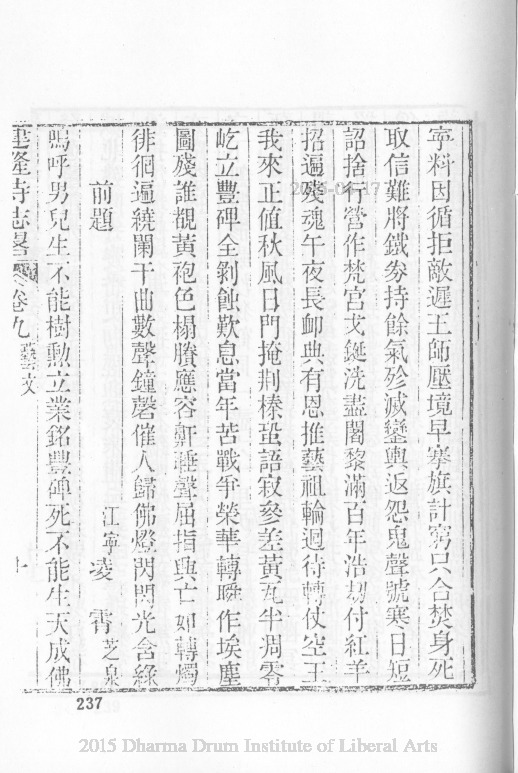 寧料因循拒敵遲王師壓境早搴旗計窮只合焚身死
取信難將鐵券持餘氣殄滅鑾輿返怨鬼聲號寒日短
詔捨行營作梵宮戈鋋洗盡闍黎滿百年浩刧付紅羊
招遍殘魂午夜長卹典有恩推藝祖輪迴待轉仗空王
我來正值秋風日門掩荆榛蛩語寂參差黃瓦半凋零
屹立豐碑全剝蝕歎息當年苦戰爭榮華轉瞬作埃塵
圖殘誰覩黃袍色榻賸應容鼾睡聲屈指興亡如轉燭
徘徊遍繞闌干曲數聲鐘磬催人歸佛燈閃閃光含綠
前題
江寧凌霄芝泉
嗚呼男兒生不能樹勳立業銘豐碑死不能生天成佛
建隆寺志畧 卷九 藝文 十
237
2015 Dharma Drum Institute of Liberal Arts